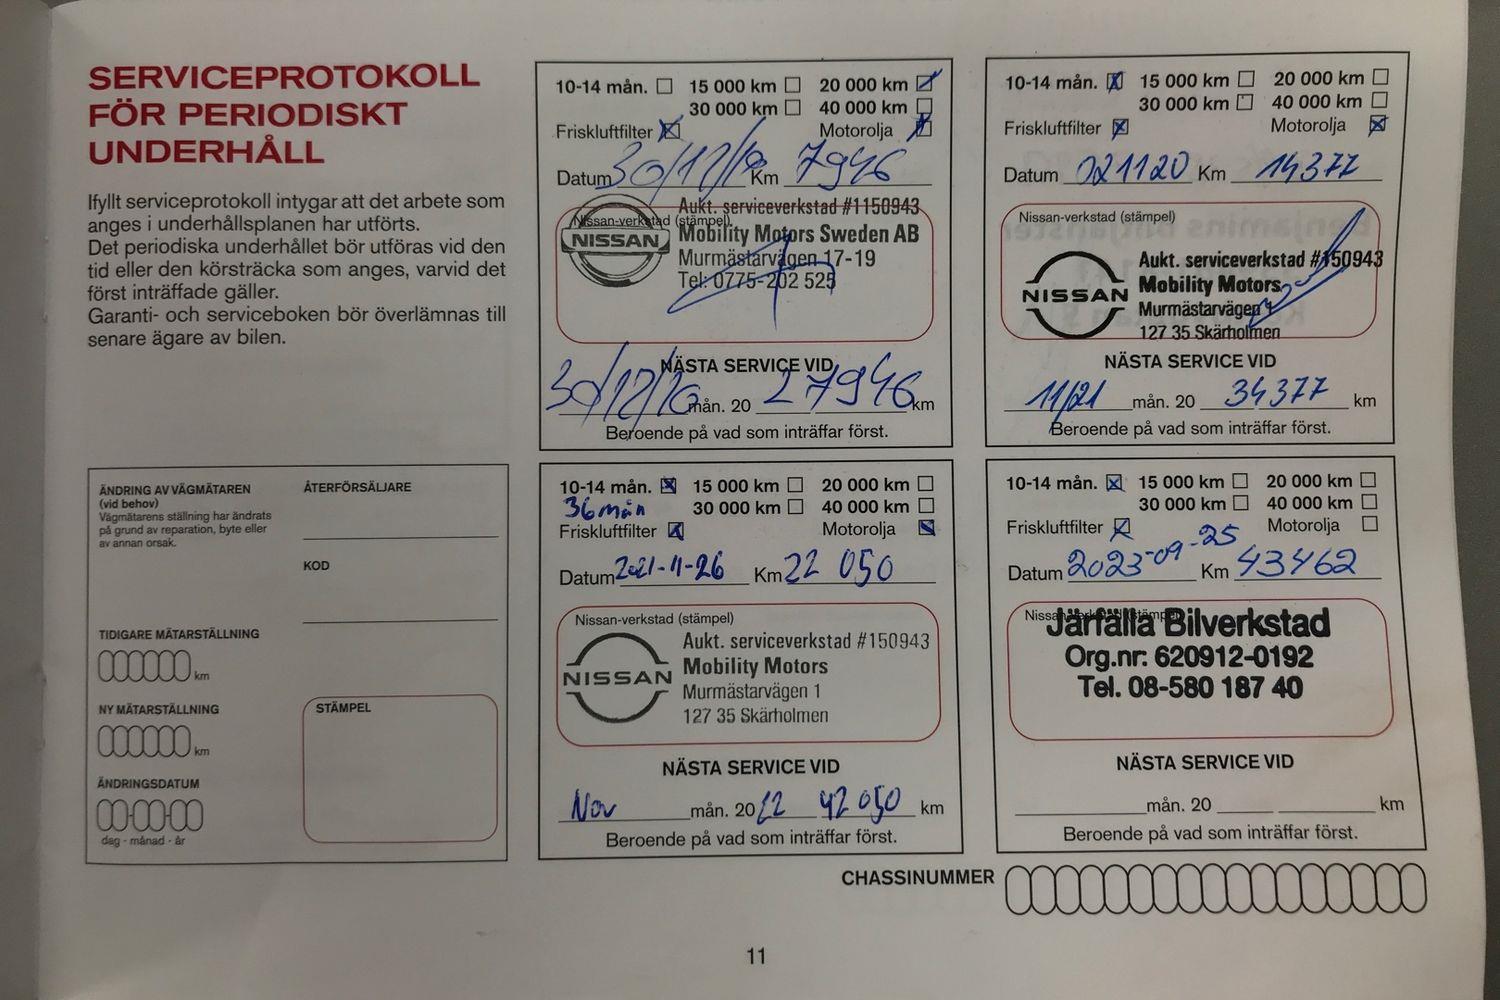 SERVICEPROTOKOLL
FÖR PERIODISKT
UNDERHÅLL
Ifyllt serviceprotokoll intygar att det arbete som
anges i underhållsplanen har utförts.
Det periodiska underhållet bör utföras vid den
tid eller den körsträcka som anges, varvid det
först inträffade gäller.
Garanti- och serviceboken bör överlämnas till
senare ägare av bilen.
ÄNDRING AV VÄGMÄTAREN
(vid behov)
Vägmätarens ställning har ändrats
på grund av reparation, byte eller
av annan orsak.
ÅTERFÖRSÄLJARE
KOD
TIDIGARE MÄTARSTÄLLNING
km
NY MÄTARSTÄLLNING
km
ÄNDRINGSDATUM
dag - månad - år
STÄMPEL
10-14 mån. 15 000 km 20 000 km
30 000 km 40 000 km
Friskluftfilter Motorolja
Datum 30/12/19 Km 7946
Nissan-verkstad (stämpel)
NISSAN
Aukt. serviceverkstad #1150943
Mobility Motors Sweden AB
Murmästarvägen 17-19
Tel: 0775-202 525
NÄSTA SERVICE VID
30/12/20 mån. 20 27946 km
Beroende på vad som inträffar först.
10-14 mån. 15 000 km 20 000 km
30 000 km 40 000 km
Friskluftfilter Motorolja
Datum 021120 Km 14377
Nissan-verkstad (stämpel)
NISSAN
Aukt. serviceverkstad #150943
Mobility Motors
Murmästarvägen 1
127 35 Skärholmen
NÄSTA SERVICE VID
11/21 mån. 20 34377 km
Beroende på vad som inträffar först.
10-14 mån. 15 000 km 20 000 km
36 mån 30 000 km 40 000 km
Friskluftfilter Motorolja
Datum 2021-11-26 Km 22 050
Nissan-verkstad (stämpel)
NISSAN
Aukt. serviceverkstad #150943
Mobility Motors
Murmästarvägen 1
127 35 Skärholmen
NÄSTA SERVICE VID
Nov mån. 20 22 42 050 km
Beroende på vad som inträffar först.
10-14 mån. 15 000 km 20 000 km
30 000 km 40 000 km
Friskluftfilter Motorolja
Datum 2023-09-25 Km 43462
Nissan-verkstad (stämpel)
Järfälla Bilverkstad
Org.nr: 620912-0192
Tel. 08-580 187 40
NÄSTA SERVICE VID
mån. 20 km
Beroende på vad som inträffar först.
CHASSINUMMER
11